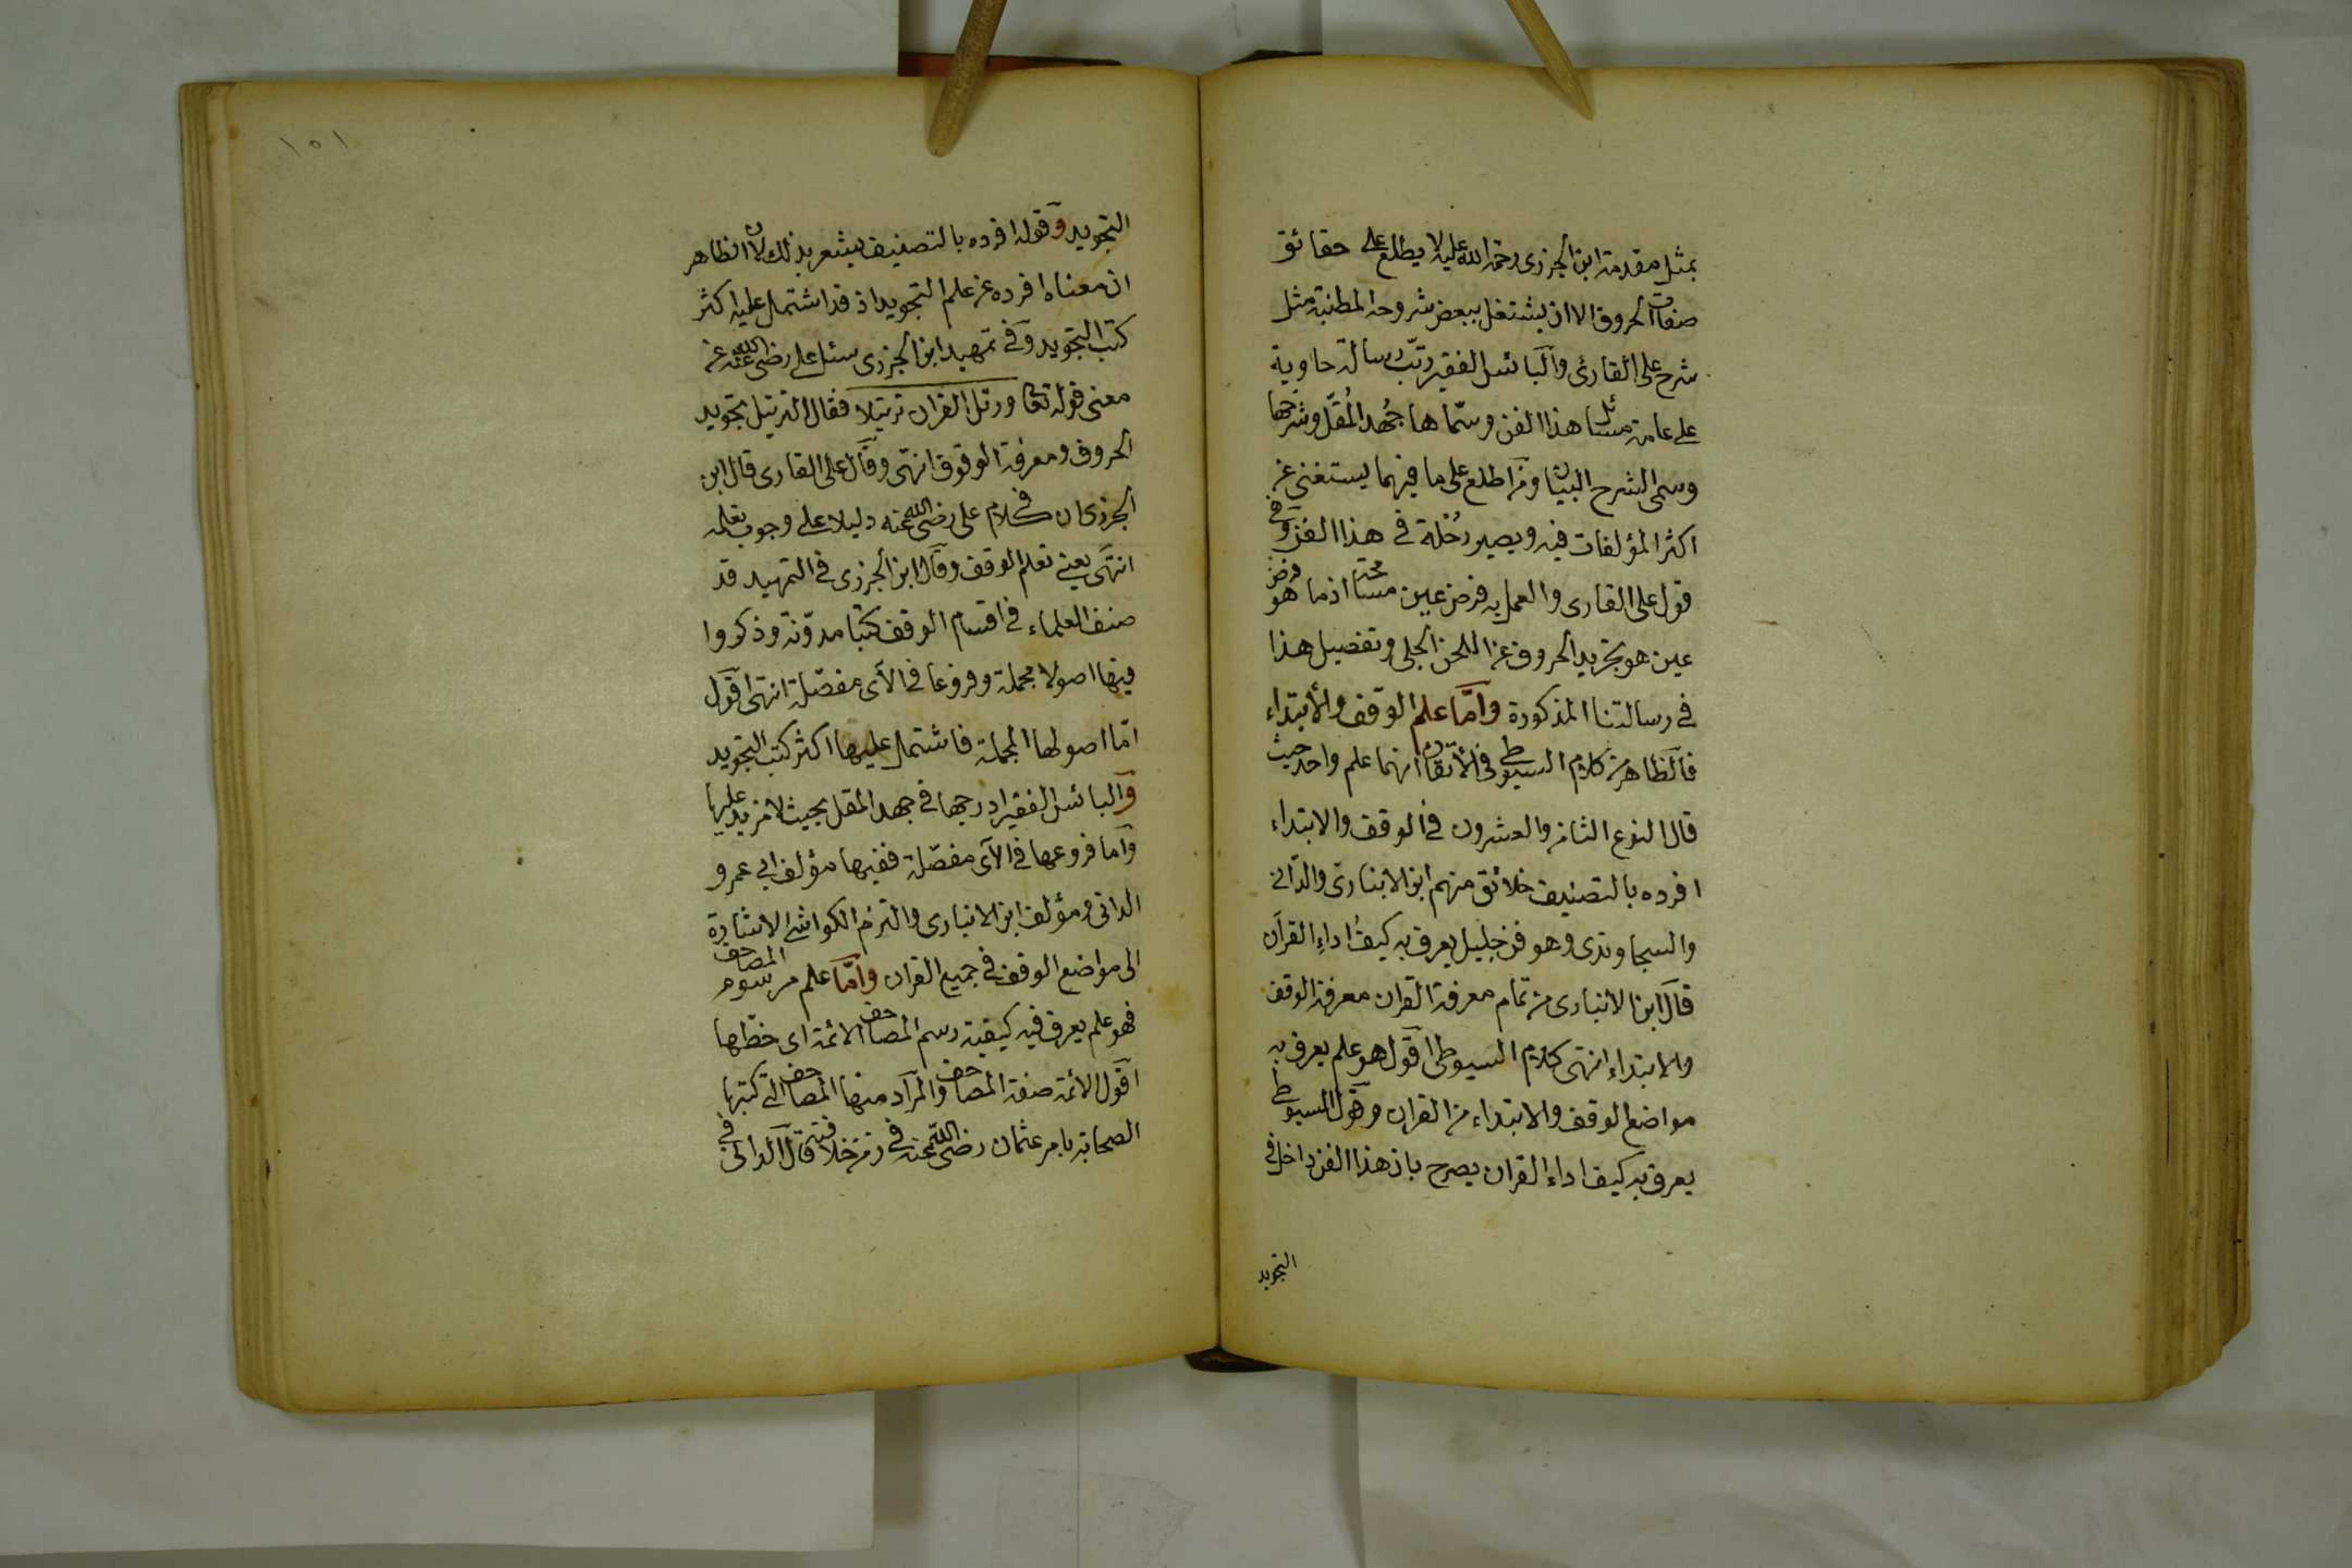 بمثل مقدمة ابن الجزرى رحمة الله عليه لا يطلع على حقائق
صفات الحروف الا ان يشتغل ببعض شروحه المطنبة مثل
شرح على القارئ والبائس الفقير رتب رسالة حاوية
على عامة مسائل هذا الفن وسماها جهد المقل وشرحها
وسمى الشرح البيان ومن اطلع على ما فيهما يستغنى عن
اكثر المؤلفات فيه ويصير رُحْلة فى هذا الفن وفى
قول على القارى والعمل به فرض عين مسامحة اذ ما هو فرض
عين هو تجريد الحروف عن اللحن الجلى وتفصيل هذا
فى رسالتنا المذكورة وامّا علم الوقف والابتداء
فالظاهر من كلام السيوطى فى الاتقان انهما علم واحد حيث
قال النوع الثامن والعشرون فى الوقف والابتداء
افرده بالتصنيف خلائق منهم ابن الانبارى والدانى
والسجاوندى وهو فن جليل يعرف به كيف اداء القرآن
قال ابن الانبارى من تمام معرفة القران معرفة الوقف
والابتداء انتهى كلام السيوطى اقول هو علم يعرف به
مواضع الوقف والابتداء من القران وقول السيوطى
يعرف به كيف اداء القران يصرح بان هذا الفن داخل فى
التجويد
١٥١
التجويد وقوله افرده بالتصنيف يشعر بذلك لان الظاهر
ان معناه افرده عن علم التجويد اذ قد اشتمل عليه اكثر
كتب التجويد وفى تمهيد ابن الجزرى سئل على رضى الله عنه عن
معنى قوله تعالى ورتل القران ترتيلا فقال الترتيل تجويد
الحروف ومعرفة الوقوف انتهى وقال على القارى قال ابن
الجزرى ان فى كلام على رضى الله عنه دليلا على وجوب تعلمه
انتهى يعنى تعلم الوقف وقال ابن الجزرى فى التمهيد قد
صنف العلماء فى اقسام الوقف كتبا مدوّنة وذكروا
فيها اصولا مجملة وفروعا فى الآى مفصّلة انتهى اقول
امّا اصولها المجملة فاشتمل عليها اكثر كتب التجويد
والبائس الفقير ادرجها فى جهد المقل بحيث لا مزيد عليها
واما فروعها فى الآى مفصّلة ففيها مؤلف ابى عمرو
الدانى ومؤلف ابن الانبارى والتزم الكواشى الاشارة
الى مواضع الوقف فى جميع القران وامّا علم مرسوم المصاحف
فهو علم يعرف فيه كيفية رسم المصاحف الائمة اى خطها
اقول الائمة صفة المصاحف والمراد منها المصاحف التى كتبها
الصحابة بامر عثمان رضى الله عنه فى زمن خلافته قال الدانى فى